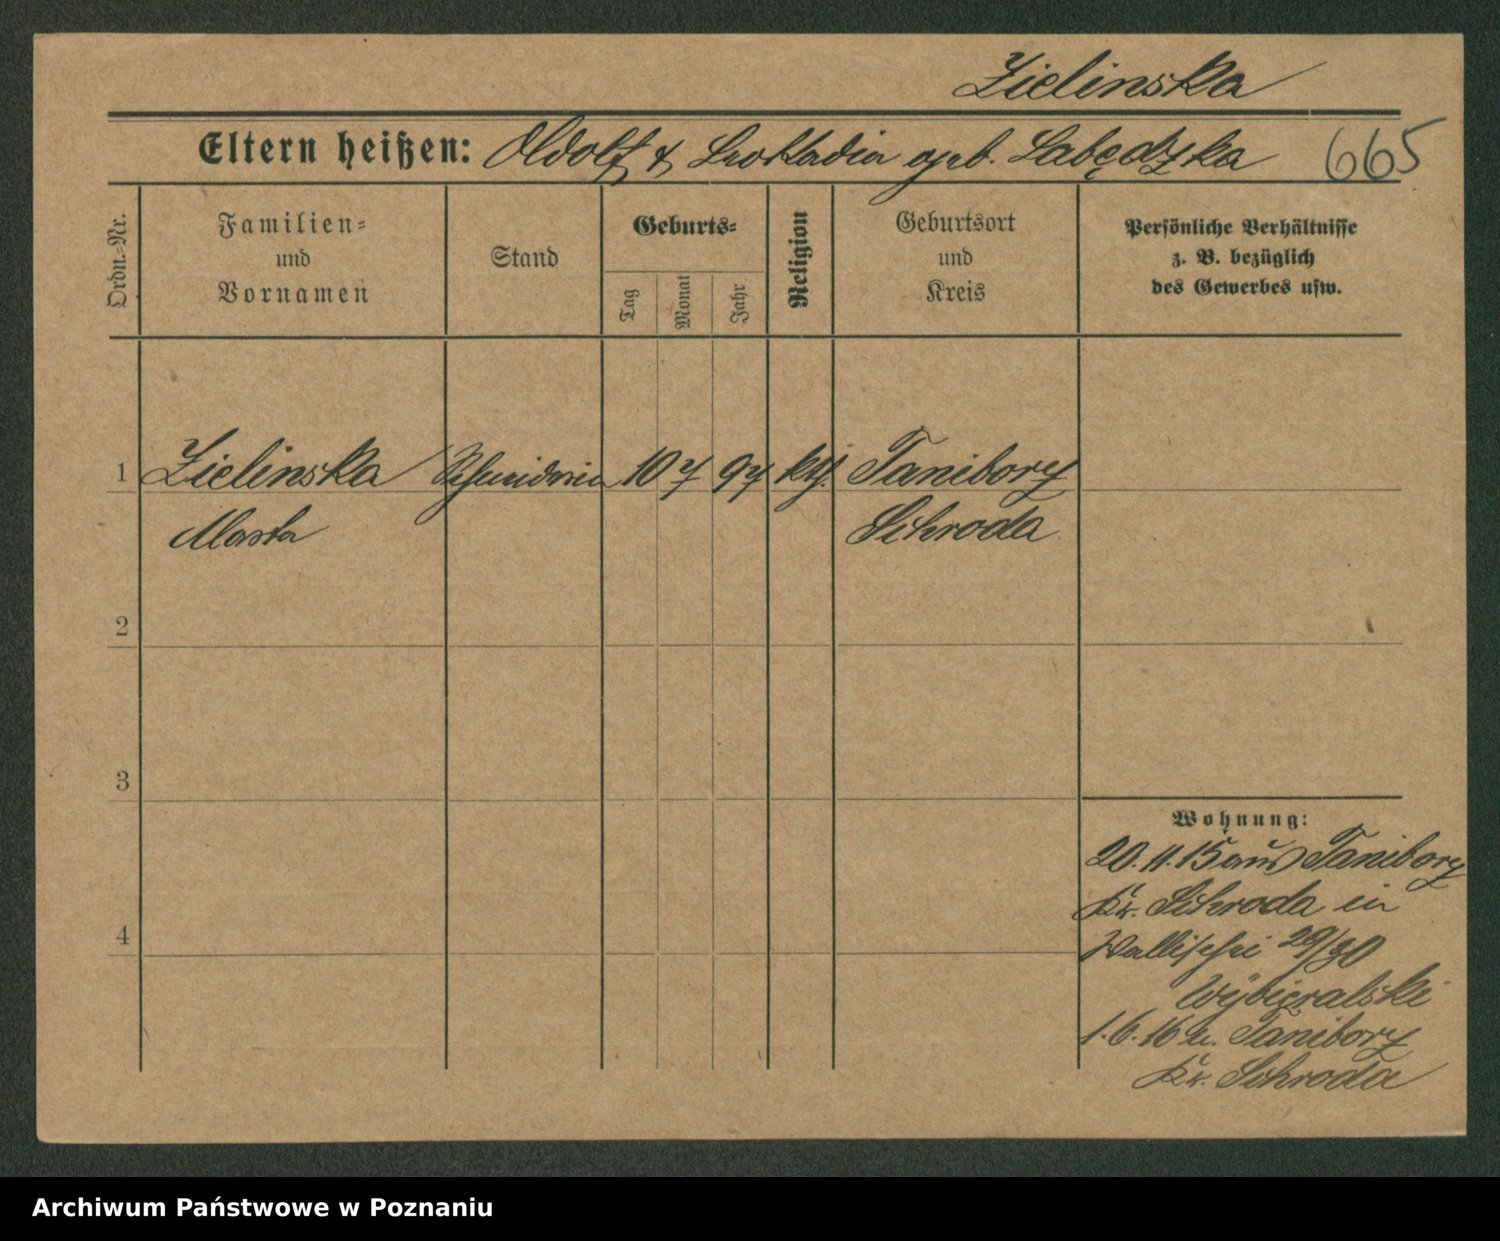 Zielinska
Eltern heißen: Adolf & Leokadia geb. Labędzka 665
Ordn.-Nr.
Familien-
und
Vornamen
Stand
Geburts-
Tag
Monat
Jahr
Religion
Geburtsort
und
Kreis
Persönliche Verhältnisse
z. B. bezüglich
des Gewerbes usw.
1 Zielinska Schneiderin 10 7 97 kth. Taniborz
Marta Schroda
2
3
4
Wohnung:
20.11.15 aus Taniborz
Kr. Schroda in
Wallischei 29/30
Wybieralski
1.6.16 n. Taniborz
Kr. Schroda
Archiwum Państwowe w Poznaniu